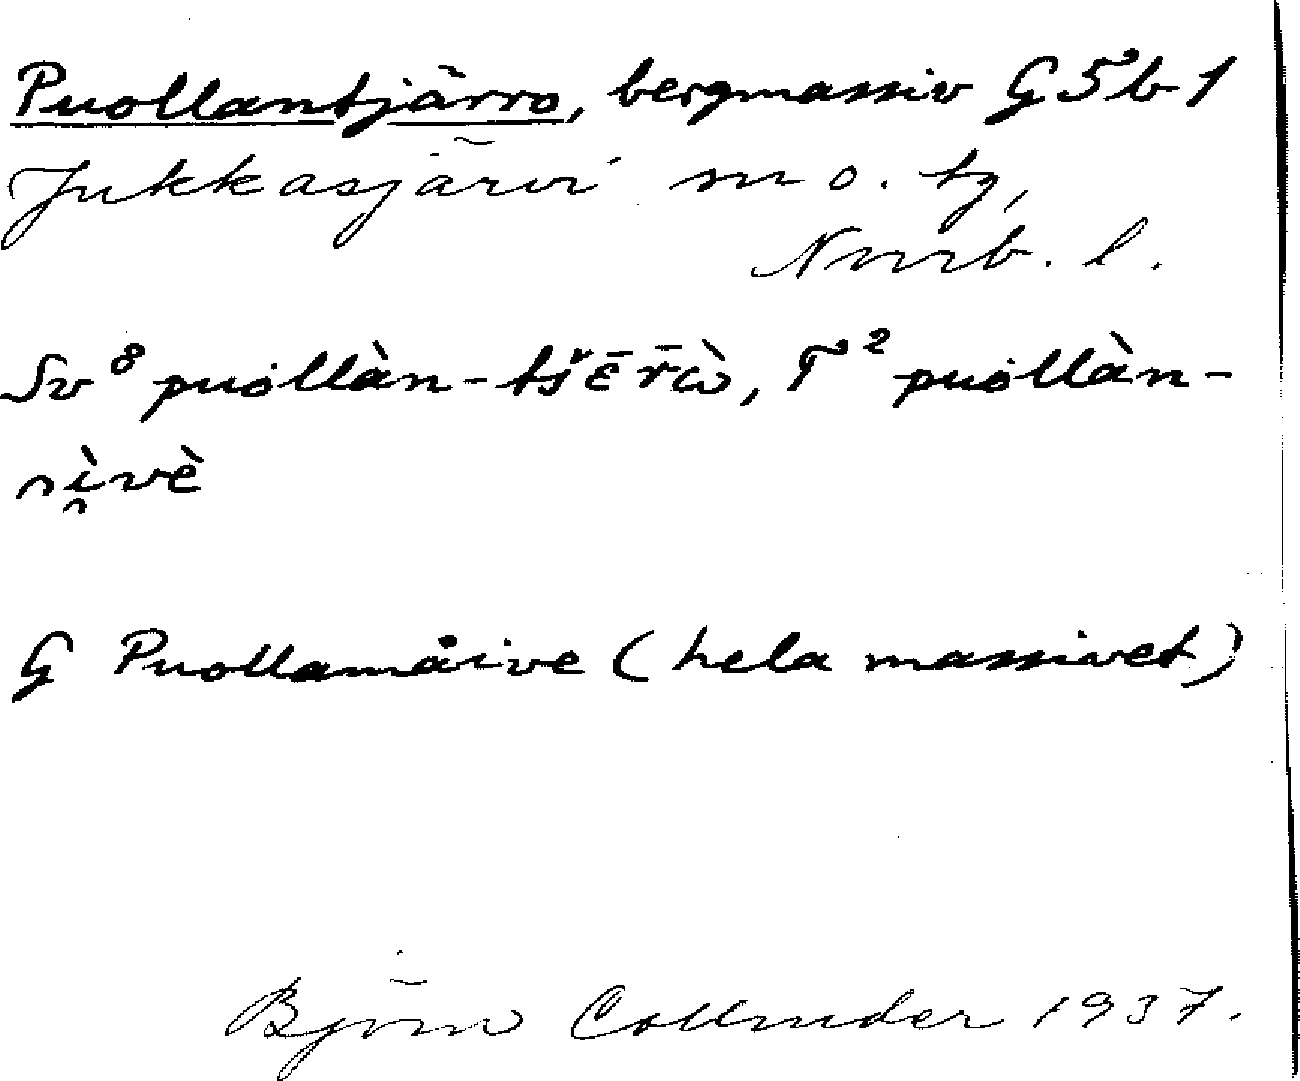 Puollantjärro, bergmassiv G5b1
Jukkasjärvi sn o. tg,
Nnrb. l.
Sv⁸ puöllàn-tšē̆r̄ὼ, T² puöllàn-
rivè
G Puollamåive (hela massivet)
Björn Collinder 1937.